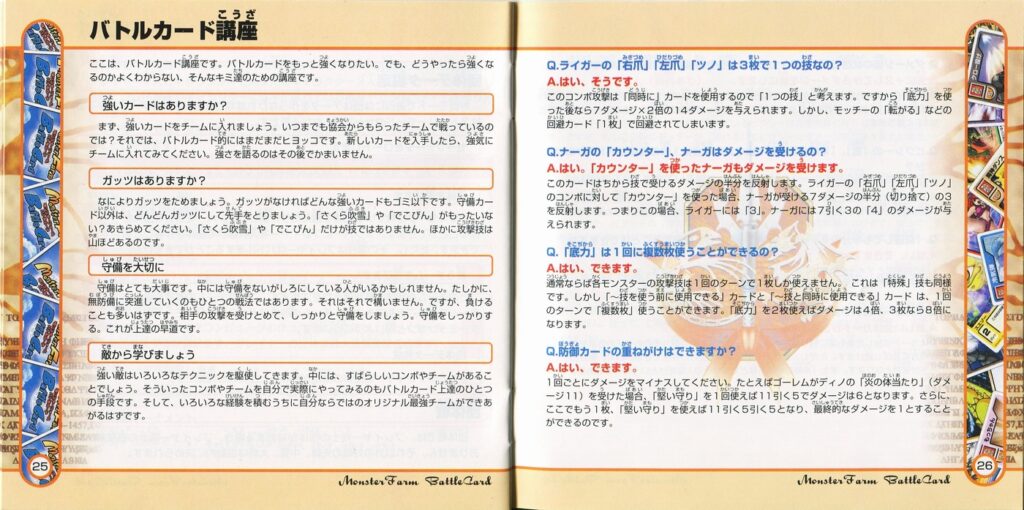 バトルカード講座
ここは、バトルカード講座です。バトルカードをもっと強くなりたい。でも、どうやったら強くな
るのかよくわからない、そんなキミ達のための講座です。
強いカードはありますか?
まず、強いカードをチームに入れましょう。いつまでも協会からもらったチームで戦っているの
では?それでは、バトルカード的にはまだまだヒヨッコです。新しいカードを入手したら、強気に
チームに入れてみてください。強さを語るのはその後でかまいません。
ガッツはありますか?
なによりガッツをためましょう。ガッツがなければどんな強いカードもゴミ以下です。守備カー
ド以外は、どんどんガッツにして先手をとりましょう。「さくら吹雪」や「でこぴん」がもったいな
い?あきらめてください。「さくら吹雪」や「でこぴん」だけが技ではありません。ほかに攻撃技は
山ほどあるのです。
守備を大切に
守備はとても大事です。中には守備をないがしろにしている人がいるかもしれません。たしかに、
無防備に突進していくのもひとつの戦法ではあります。それはそれで構いません。ですが、負ける
ことも多いはずです。相手の攻撃を受けとめて、しっかりと守備をしましょう。守備をしっかりす
る。これが上達の早道です。
敵から学びましょう
強い敵はいろいろなテクニックを駆使してきます。中には、すばらしいコンボやチームがあるこ
とでしょう。そういったコンボやチームを自分で実際にやってみるのもバトルカード上達のひとつ
の手段です。そして、いろいろな経験を積むうちに自分ならではのオリジナル最強チームができあ
がるはずです。
25
MonsterFarm BattleCard
Q.ライガーの「右爪」「左爪」「ツノ」は3枚で1つの技なの?
A.はい、そうです。
このコンボ攻撃は「同時に」カードを使用するので「1つの技」と考えます。ですから「底力」を使
った後なら7ダメージ×2倍の14ダメージを与えられます。しかし、モッチーの「転がる」などの
回避カード「1枚」で回避されてしまいます。
Q.ナーガの「カウンター」、ナーガはダメージを受けるの?
A.はい。「カウンター」を使ったナーガもダメージを受けます。
このカードはちから技で受けるダメージの半分を反射します。ライガーの「右爪」「左爪」「ツノ」
のコンボに対して「カウンター」を使った場合、ナーガが受ける7ダメージの半分(切り捨て)の3
を反射します。つまりこの場合、ライガーには「3」、ナーガには7引く3の「4」のダメージが与
えられます。
Q.「底力」は1回に複数枚使うことができるの?
A.はい、できます。
通常ならば各モンスターの攻撃技は1回のターンで1枚しか使えません。これは「特殊」技も同様
です。しかし「~技を使う前に使用できる」カードと「~技と同時に使用できる」カード は、1回
のターンで「複数枚」使うことができます。「底力」を2枚使えばダメージは4倍、3枚なら8倍に
なります。
Q.防御カードの重ねがけはできますか?
A.はい、できます。
1回ごとにダメージをマイナスしてください。たとえばゴーレムがディノの「炎の体当たり」(ダメ
ージ11)を受けた場合、「堅い守り」を1回使えば11引く5でダメージは6となります。さらに、
ここでもう1枚、「堅い守り」を使えば11引く5引く5となり、最終的なダメージを1とすること
ができるのです。
もっちゃん
26
MonsterFarm BattleCard